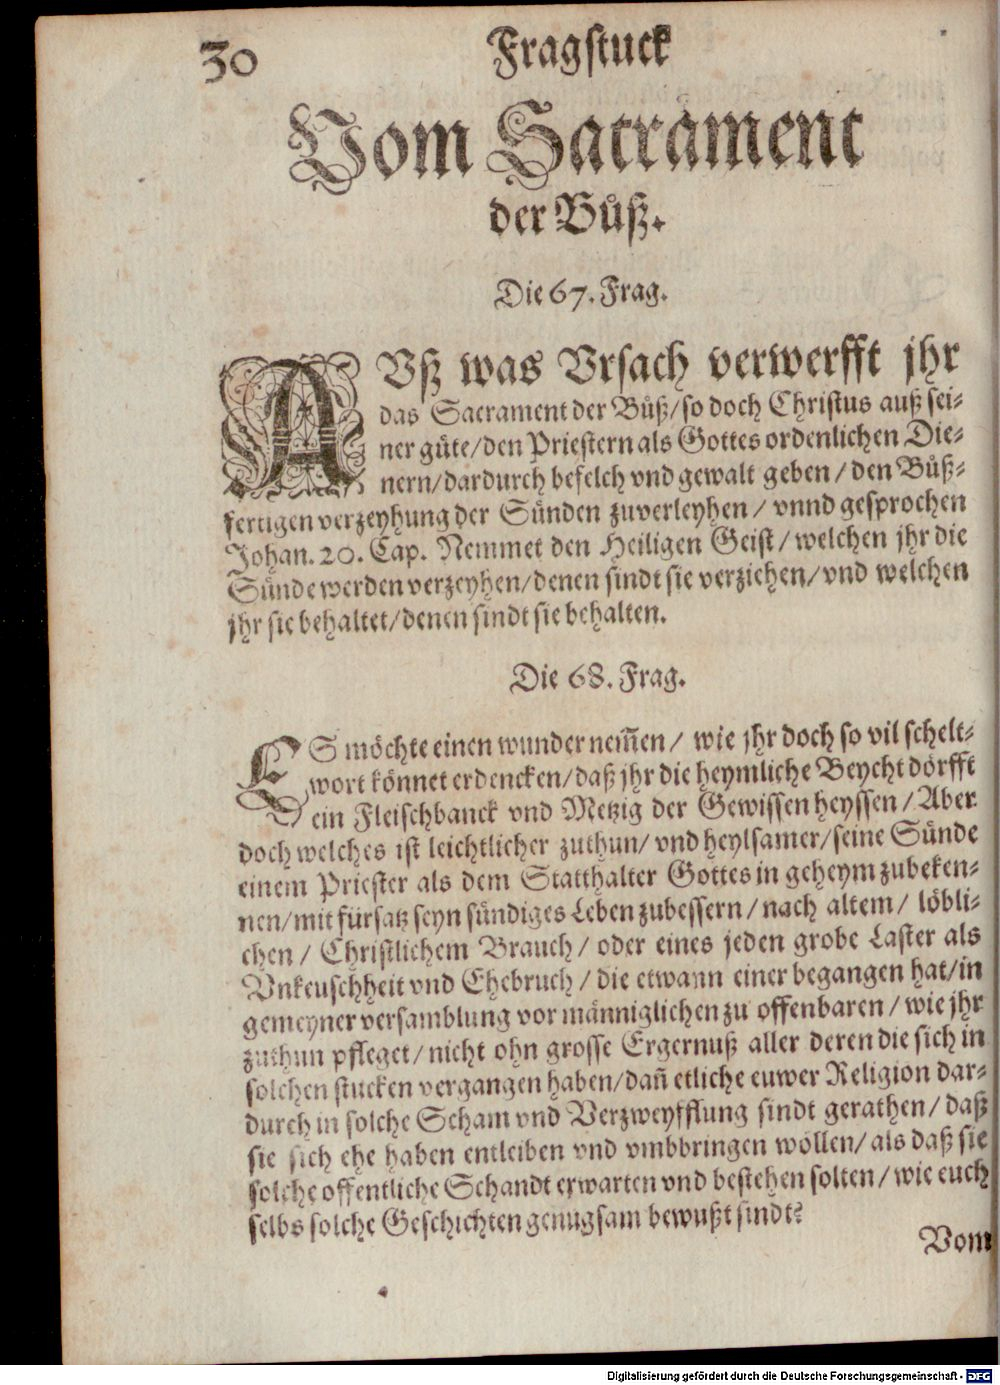 30
Fragstuck
Vom Sacrament
der Bůß.
Die 67. Frag.
AVß was Vrsach verwerfft jhr
das Sacrament der Bůß/so doch Christus auß sei-
ner güte/den Priestern als Gottes ordenlichen Die-
nern/dardurch befelch vnd gewalt geben/den Bůß-
fertigen verzeyhung der Sünden zuverleyhen/vnnd gesprochen
Johan. 20. Cap. Nemmet den Heiligen Geist/welchen jhr die
Sünde werden verzeyhen/denen sindt sie verziehen/vnd welchen
jhr sie behaltet/denen sindt sie behalten.
Die 68. Frag.
ES möchte einen wunder nem̃en/ wie jhr doch so vil schelt-
wort könnet erdencken/daß jhr die heymliche Beycht dörfft
ein Fleischbanck vnd Metzig der Gewissen heyssen/Aber
doch welches ist leichtlicher zuthun/vnd heylsamer/seine Sünde
einem Priester als dem Statthalter Gottes in geheym zubeken-
nen/mit fürsatz seyn sündiges Leben zubessern/nach altem/ löbli-
chen/ Christlichem Brauch/ oder eines jeden grobe Laster als
Vnkeuschheit vnd Ehebruch/die etwann einer begangen hat/in
gemeyner versamblung vor männiglichen zu offenbaren/wie jhr
zuthun pfleget/nicht ohn grosse Ergernuß aller deren die sich in
solchen stucken vergangen haben/dañ etliche euwer Religion dar-
durch in solche Scham vnd Verzweyfflung sindt gerathen/daß
sie sich ehe haben entleiben vnd vmbbringen wöllen/als daß sie
solche offentliche Schandt erwarten vnd bestehen solten/wie euch
selbs solche Geschichten genugsam bewußt sindt?
Vom
Digitalisierung gefördert durch die Deutsche Forschungsgemeinschaft - DFG